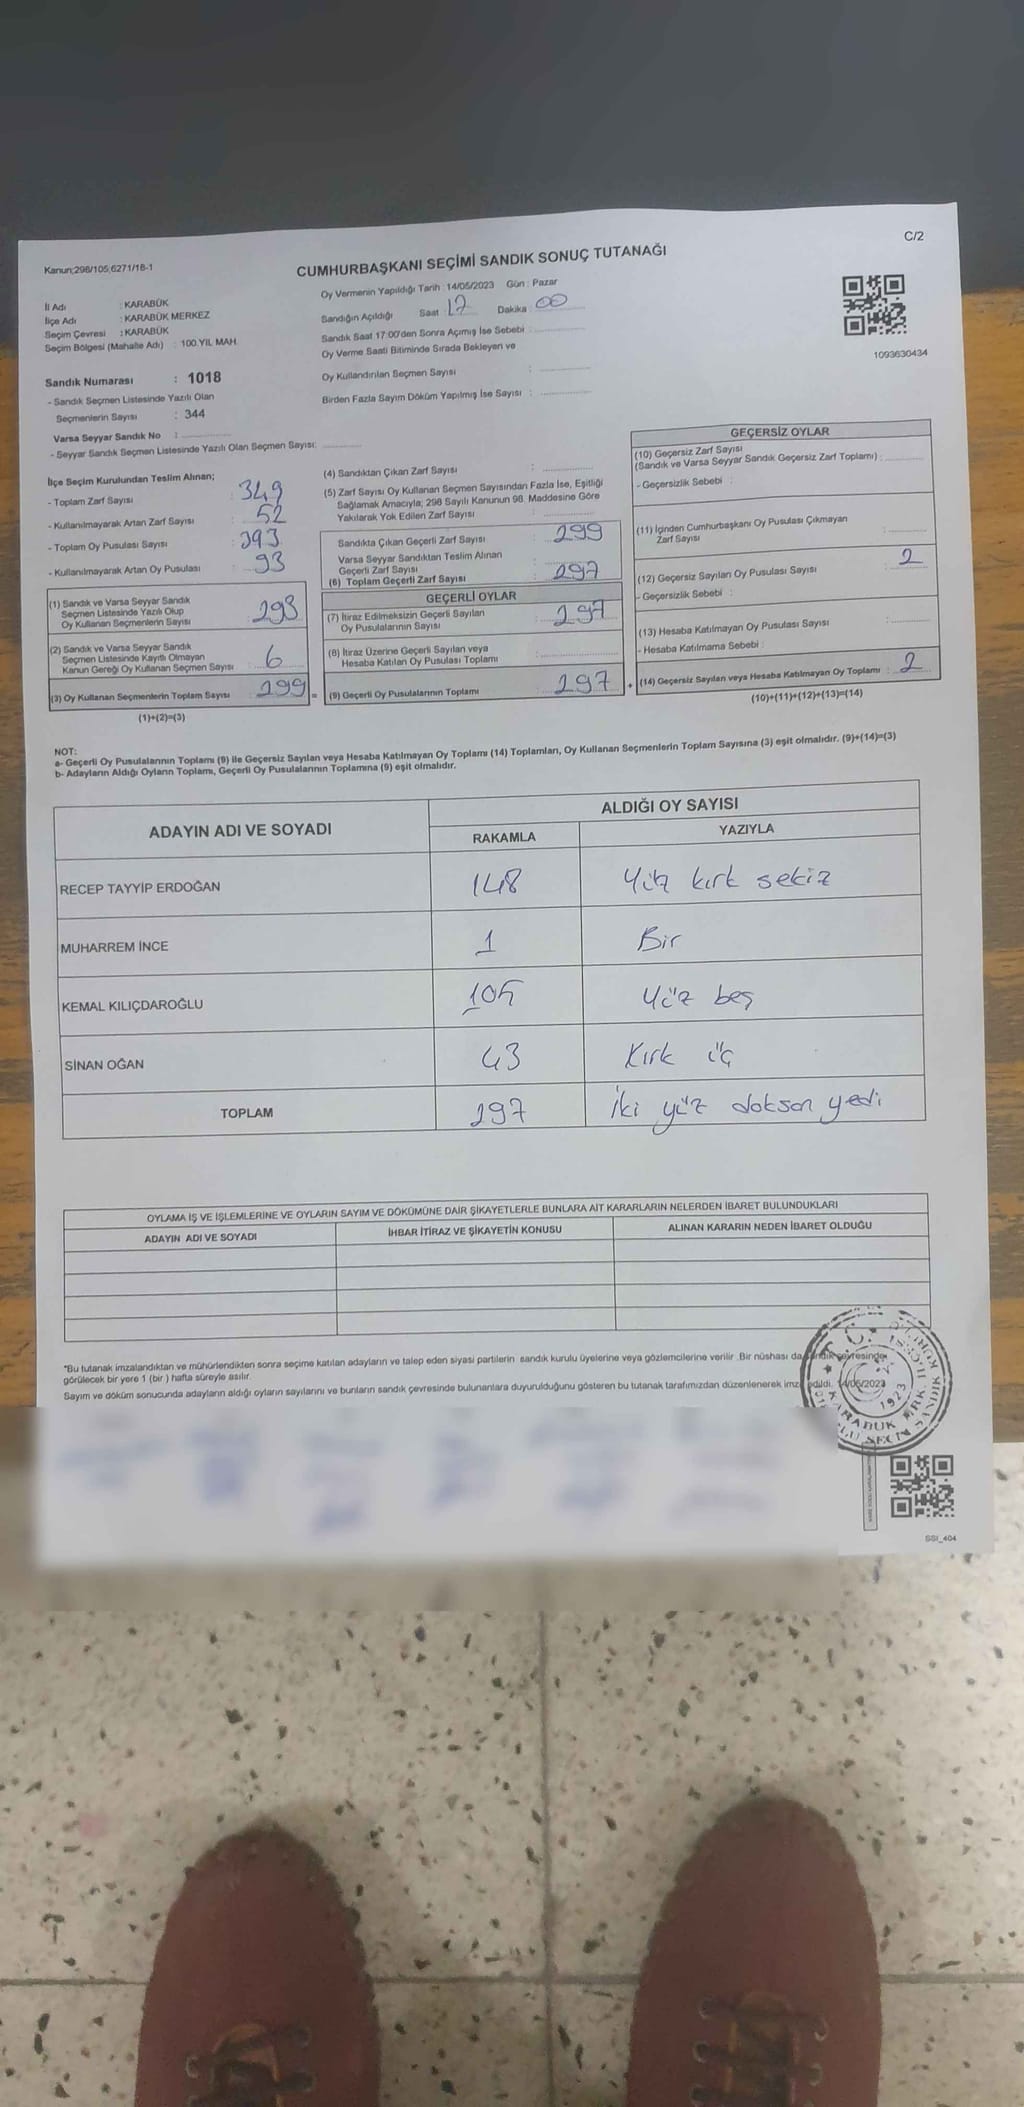 C/2
Kanun;298/105;6271/18-1
CUMHURBAŞKANI SEÇİMİ SANDIK SONUÇ TUTANAĞI
İl Adı : KARABÜK
İlçe Adı : KARABÜK MERKEZ
Seçim Çevresi : KARABÜK
Seçim Bölgesi (Mahalle Adı) : 100.YIL MAH.
Sandık Numarası : 1018
- Sandık Seçmen Listesinde Yazılı Olan
Seçmenlerin Sayısı : 344
Varsa Seyyar Sandık No :
- Seyyar Sandık Seçmen Listesinde Yazılı Olan Seçmen Sayısı:
Oy Vermenin Yapıldığı Tarih : 14/05/2023 Gün : Pazar
Sandığın Açıldığı Saat : 17 Dakika : 00
Sandık Saat 17:00'den Sonra Açımış İse Sebebi :
Oy Verme Saati Bitiminde Sırada Bekleyen ve
Oy Kullandırılan Seçmen Sayısı :
Birden Fazla Sayım Döküm Yapılmış İse Sayısı :
1093630434
İlçe Seçim Kurulundan Teslim Alınan;
- Toplam Zarf Sayısı : 349
- Kullanılmayarak Artan Zarf Sayısı : 52
- Toplam Oy Pusulası Sayısı : 393
- Kullanılmayarak Artan Oy Pusulası : 93
(1) Sandık ve Varsa Seyyar Sandık
Seçmen Listesinde Yazılı Olup
Oy Kullanan Seçmenlerin Sayısı : 293
(2) Sandık ve Varsa Seyyar Sandık
Seçmen Listesinde Kayıtlı Olmayan
Kanun Gereği Oy Kullanan Seçmen Sayısı : 6
(3) Oy Kullanan Seçmenlerin Toplam Sayısı : 299 =
(1)+(2)=(3)
(4) Sandıktan Çıkan Zarf Sayısı :
(5) Zarf Sayısı Oy Kullanan Seçmen Sayısından Fazla İse, Eşitliği
Sağlamak Amacıyla; 298 Sayılı Kanunun 98. Maddesine Göre
Yakılarak Yok Edilen Zarf Sayısı :
Sandıkta Çıkan Geçerli Zarf Sayısı : 299
Varsa Seyyar Sandıktan Teslim Alınan
Geçerli Zarf Sayısı
(6) Toplam Geçerli Zarf Sayısı : 297
GEÇERLİ OYLAR
(7) İtiraz Edilmeksizin Geçerli Sayılan
Oy Pusulalarının Sayısı : 297
(8) İtiraz Üzerine Geçerli Sayılan veya
Hesaba Katılan Oy Pusulası Toplamı :
(9) Geçerli Oy Pusulalarının Toplamı : 297 +
GEÇERSİZ OYLAR
(10) Geçersiz Zarf Sayısı
(Sandık ve Varsa Seyyar Sandık Geçersiz Zarf Toplamı) :
- Geçersizlik Sebebi :
(11) İçinden Cumhurbaşkanı Oy Pusulası Çıkmayan
Zarf Sayısı :
(12) Geçersiz Sayılan Oy Pusulası Sayısı : 2
- Geçersizlik Sebebi :
(13) Hesaba Katılmayan Oy Pusulası Sayısı :
- Hesaba Katılmama Sebebi :
(14) Geçersiz Sayılan veya Hesaba Katılmayan Oy Toplamı : 2
(10)+(11)+(12)+(13)=(14)
NOT:
a- Geçerli Oy Pusulalarının Toplamı (9) ile Geçersiz Sayılan veya Hesaba Katılmayan Oy Toplamı (14) Toplamları, Oy Kullanan Seçmenlerin Toplam Sayısına (3) eşit olmalıdır. (9)+(14)=(3)
b- Adayların Aldığı Oyların Toplamı, Geçerli Oy Pusulalarının Toplamına (9) eşit olmalıdır.
ADAYIN ADI VE SOYADI
ALDIĞI OY SAYISI
RAKAMLA YAZIYLA
RECEP TAYYİP ERDOĞAN 148 Yüz kırk sekiz
MUHARREM İNCE 1 Bir
KEMAL KILIÇDAROĞLU 105 Yüz beş
SİNAN OĞAN 43 Kırk üç
TOPLAM 297 İki yüz doksan yedi
OYLAMA İŞ VE İŞLEMLERİNE VE OYLARIN SAYIM VE DÖKÜMÜNE DAİR ŞİKAYETLERLE BUNLARA AİT KARARLARIN NELERDEN İBARET BULUNDUKLARI
ADAYIN ADI VE SOYADI İHBAR İTİRAZ VE ŞİKAYETİN KONUSU ALINAN KARARIN NEDEN İBARET OLDUĞU
*Bu tutanak imzalandıktan ve mühürlendikten sonra seçime katılan adayların ve talep eden siyasi partilerin sandık kurulu üyelerine veya gözlemcilerine verilir .Bir nüshası da sandık çevresinde
görülecek bir yere 1 (bir ) hafta süreyle asılır.
Sayım ve döküm sonucunda adayların aldığı oyların sayılarını ve bunların sandık çevresinde bulunanlara duyurulduğunu gösteren bu tutanak tarafımızdan düzenlenerek imza edildi. 14/05/2023
T.C.
1923
KARABÜK MRK
SEÇİM SANDIK
SSI_404